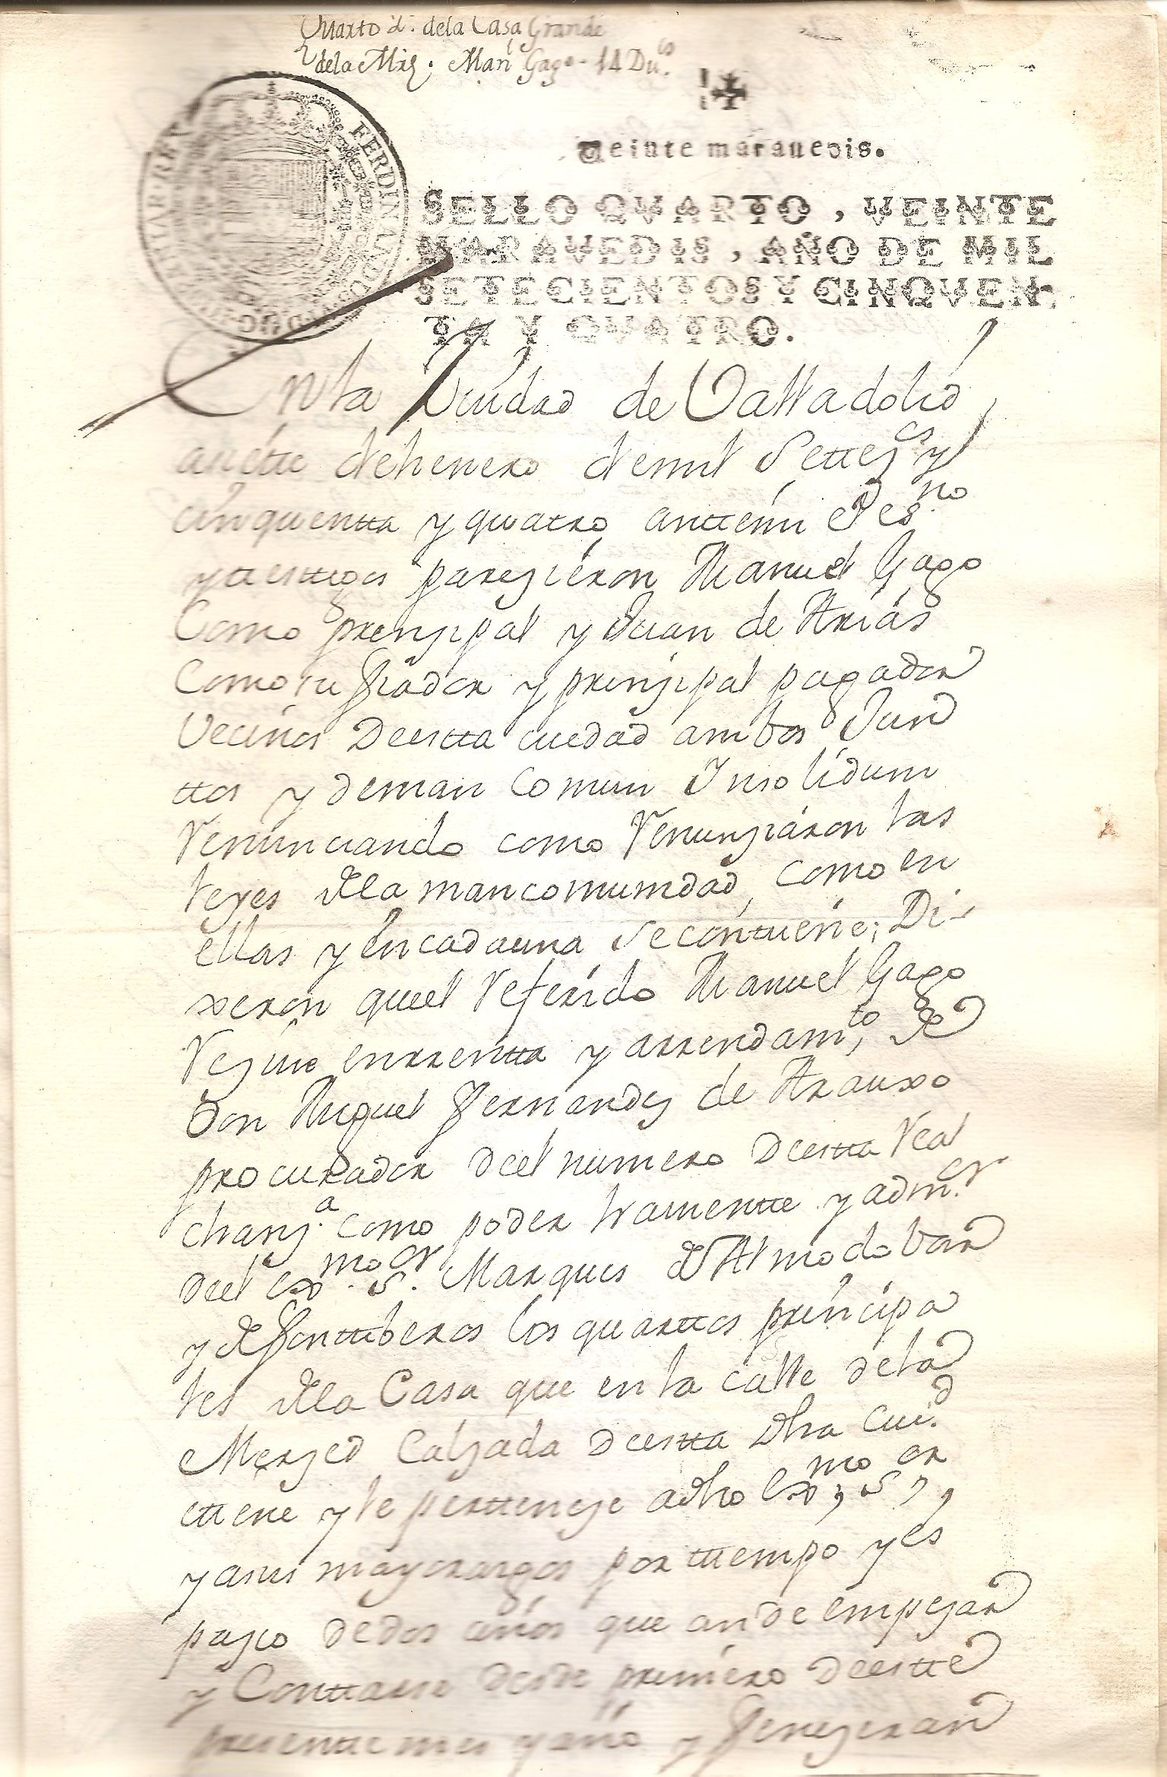 Quarto d. dela Casa Grande
dela Mrz. Man Gago - 14 Du.os
Veinte maravedis.
SELLO QVARTO, VEINTE
MARAVEDIS, AÑO DE MIL
SETECIENTOS Y CINQVEN-
TA Y QVATRO.
FERDINANDUS
HISPAR REX
Enla Ziudad de Valladolid
a siette dehenero demil Settecs y
cinquentta y quatro anttemi el esno
y ttesttigos parezieron Manuel Gago
Como prenzipal y Juan de Arias
Como su fiador y prinzipal pagador
Vecinos Deestta ciudad ambos Jun
ttos y deman Comun Insolidum
Renunciando como Renunziaron las
leyes dela mancomunidad, como en
ellas y encadauna Secontiene; Di-
xeron queel Referido Manuel Gago
Rezivio enrrentta y arrendamto, de
Don Miguel Fernandez de Arauxo
procurador deel numero Deestta Real
chanz.a como poder haviente y adm.or
deel Exmo. Sor. Marques de Almodobar
y de Fonttiberos los quarttos principa
les dela Casa que en la calle dela
Merzed Calzada Deestta Dha Ciu.d
ttiene y le pertteneze adho Exmo, Sor,
y asus mayorazgos por ttiempo y es
pazio dedos años que ande empezar
y Conttarse desde primero deestte
presentte mes y año y Fenezeran